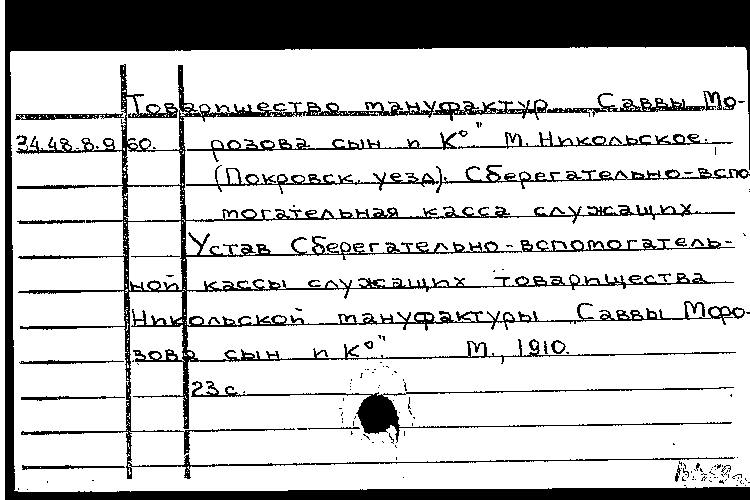 Товарищество мануфактур „Саввы Мо-
34.48.8.9 60. розова сын и К°" М. Никольское.
(Покровск. уезд). Сберегательно-вспо
могательная касса служащих.
Устав Сберегательно-вспомогатель-
ной кассы служащих товарищества
Никольской мануфактуры „Саввы Моро-
зова сын и К°". М., 1910.
23 с.